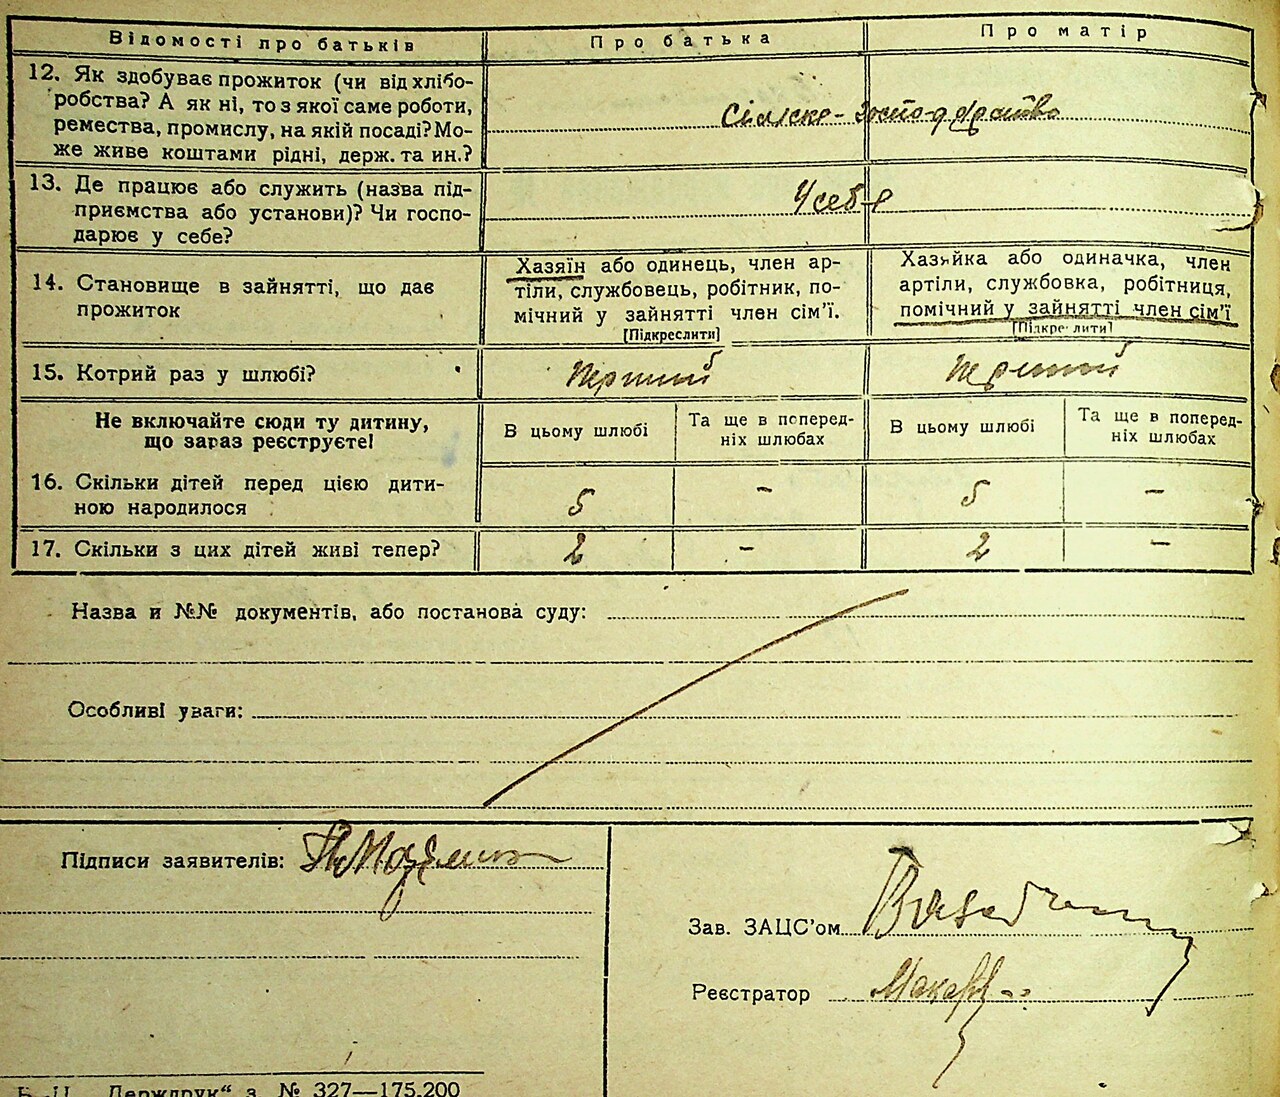 Відомості про батьків
Про батька
Про матір
12. Як здобуває прожиток (чи від хлібо-
робства? А як ні, то з якої саме роботи,
ремества, промислу, на якій посаді? Мо-
же живе коштами рідні, держ. та ин.?
13. Де працює або служить (назва під-
приємства або установи)? Чи госпо-
дарює у себе?
У себе
14. Становище в зайнятті, що дає
прожиток
Хазяїн або одинець, член ар-
тіли, службовець, робітник, по-
мічний у зайнятті член сім'ї.
[Підкреслити]
Хазяйка або одиначка, член
артіли, службовка, робітниця,
помічний у зайнятті член сім'ї
[Підкреслити]
15. Котрий раз у шлюбі?
Перший
Перший
Не включайте сюди ту дитину,
що зараз реєструєте!
В цьому шлюбі
Та ще в поперед-
ніх шлюбах
В цьому шлюбі
Та ще в поперед-
ніх шлюбах
16. Скільки дітей перед цією дити-
ною народилося
5
–
5
–
17. Скільки з цих дітей живі тепер?
2
–
2
–
Назва и №№ документів, або постанова суду:
Особливі уваги:
Підписи заявителів:
Зав. ЗАЦС'ом
Реєстратор
Держдрук“ з. № 327—175.200